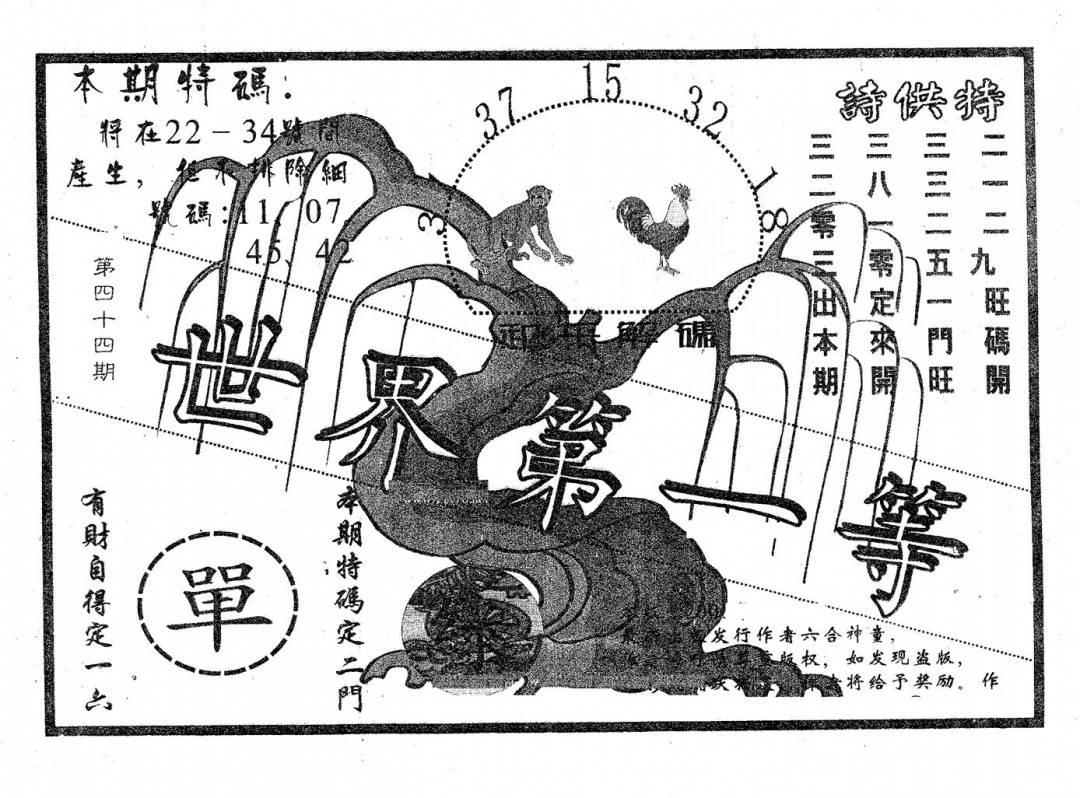 本期特碼：
將在22－34號間
產生，但不排除細
號碼:11、07、
45、42
第四十四期
37
15
32
1
8
特供詩
二一二九旺碼開
三三二五一門旺
三八一零定來開
三二零三出本期
解
碼
世界第一等
有財自得定一六
單
本期特碼定二門
发行作者六合神童，
版权，如发现盗版，
将给予奖励。作